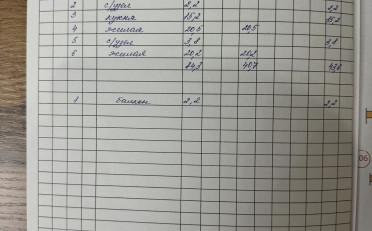 2 с/узел 2,2 2,2
3 кухня 15,2 15,2
4 жилая 20,5 20,5
5 с/узел 3,8 3,8
6 жилая 20,2 20,2
84,3 40,7 43,6
1 Балкон 2,2 2,2
06